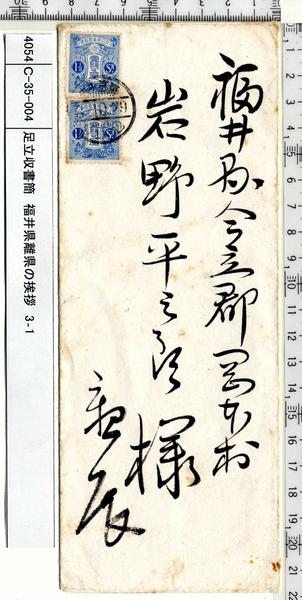 福井県今立郡岡本村
岩野平三郎様
親展
4054 C-35-004 足立収書簡 福井県離県の挨拶 3-1
1½ Sn
1½ Sn
10.29